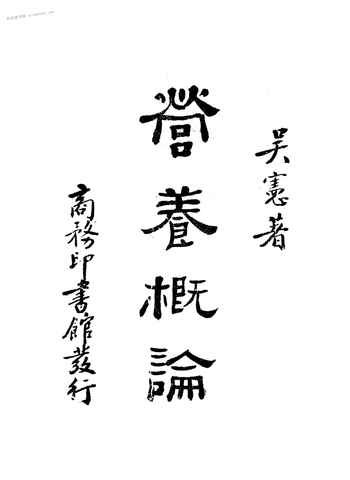 吴憲著
營養概論
商務印書館發行